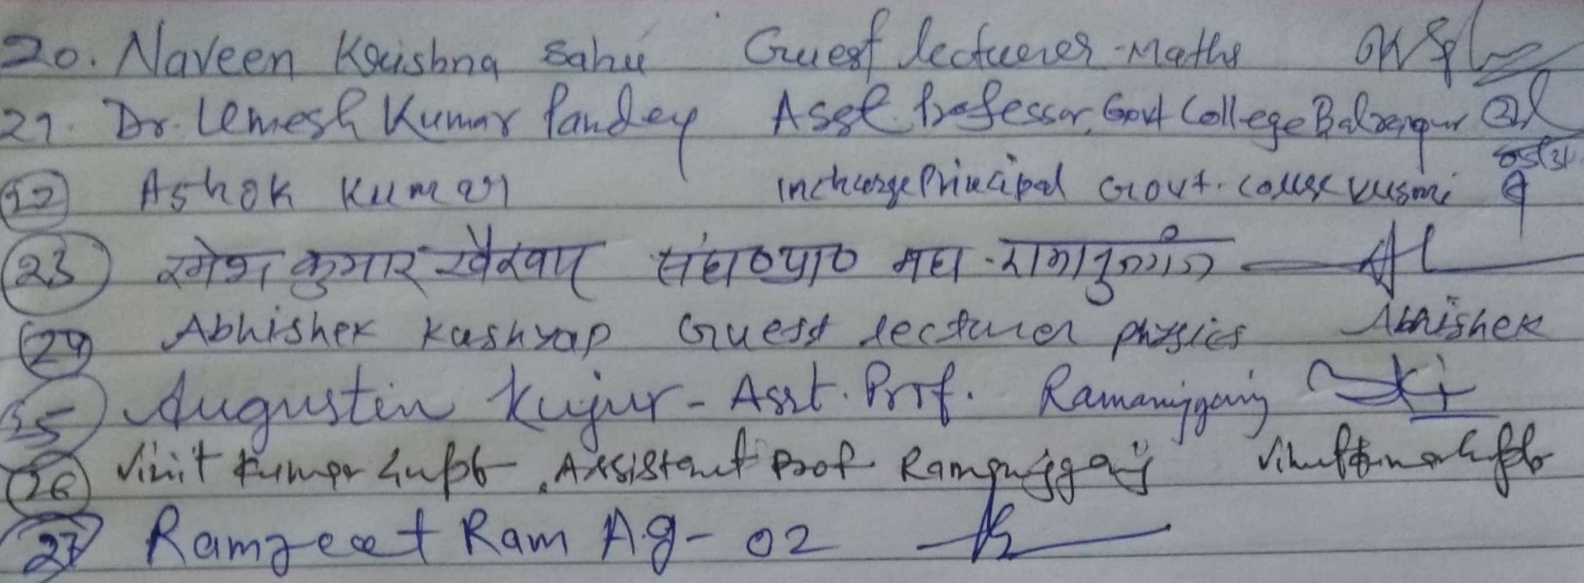 20. Naveen Krishna Sahu Guest lecturer Maths
21. Dr. Umesh Kumar Pandey Asst. Professor, Govt College Balrampur
22 Ashok Kumar Incharge Principal Govt. College Kusmi
23 रमेश कुमार खैरवार
24 Abhishek Kashyap Guest lecturer physics Abhishek
25 Augustin Kujur - Asst. Prof. Ramanujganj
26 Vinit Kumar Gupta, Assistant Prof Ramanujganj
27 Ramjeet Ram Ag-02